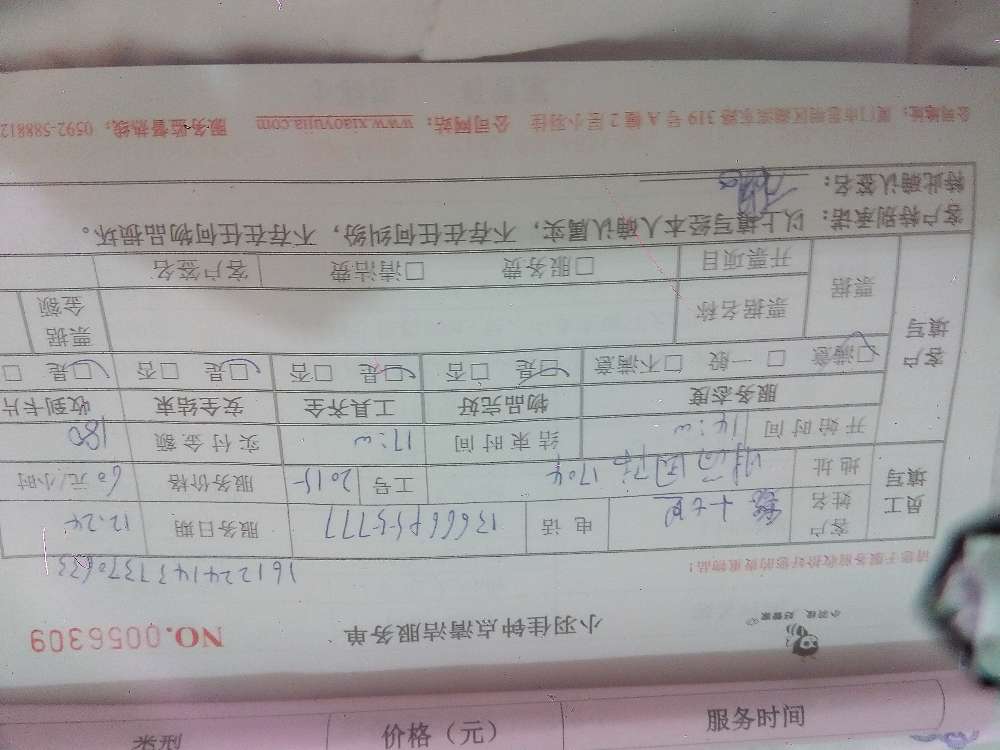 小羽佳 好管家
小羽佳钟点清洁服务单 NO.0056309
请您于服务前收拾好您的贵重物品！
员工填写 客户姓名 电话 服务日期 12.24
地址 1704 工号 2015 服务价格 60元/小时
开始时间 结束时间 实付金额 180
客户填写 服务态度 物品完好 工具齐全 安全结束 收到卡片
□满意 □一般 □不满意 □是 □否 □是 □否 □是 □否 □是 □
票据 票据名称 票据金额
开票项目 □服务费 □清洁费 客户签名
客户特别承诺：以上填写经本人确认属实，不存在任何纠纷，不存在任何物品损坏。
特此确认签名：
公司地址：厦门市思明区湖滨东路319号A幢2层小羽佳 公司网站：www.xiaoyujia.com 服务监督热线：0592-588812
类型 价格（元） 服务时间